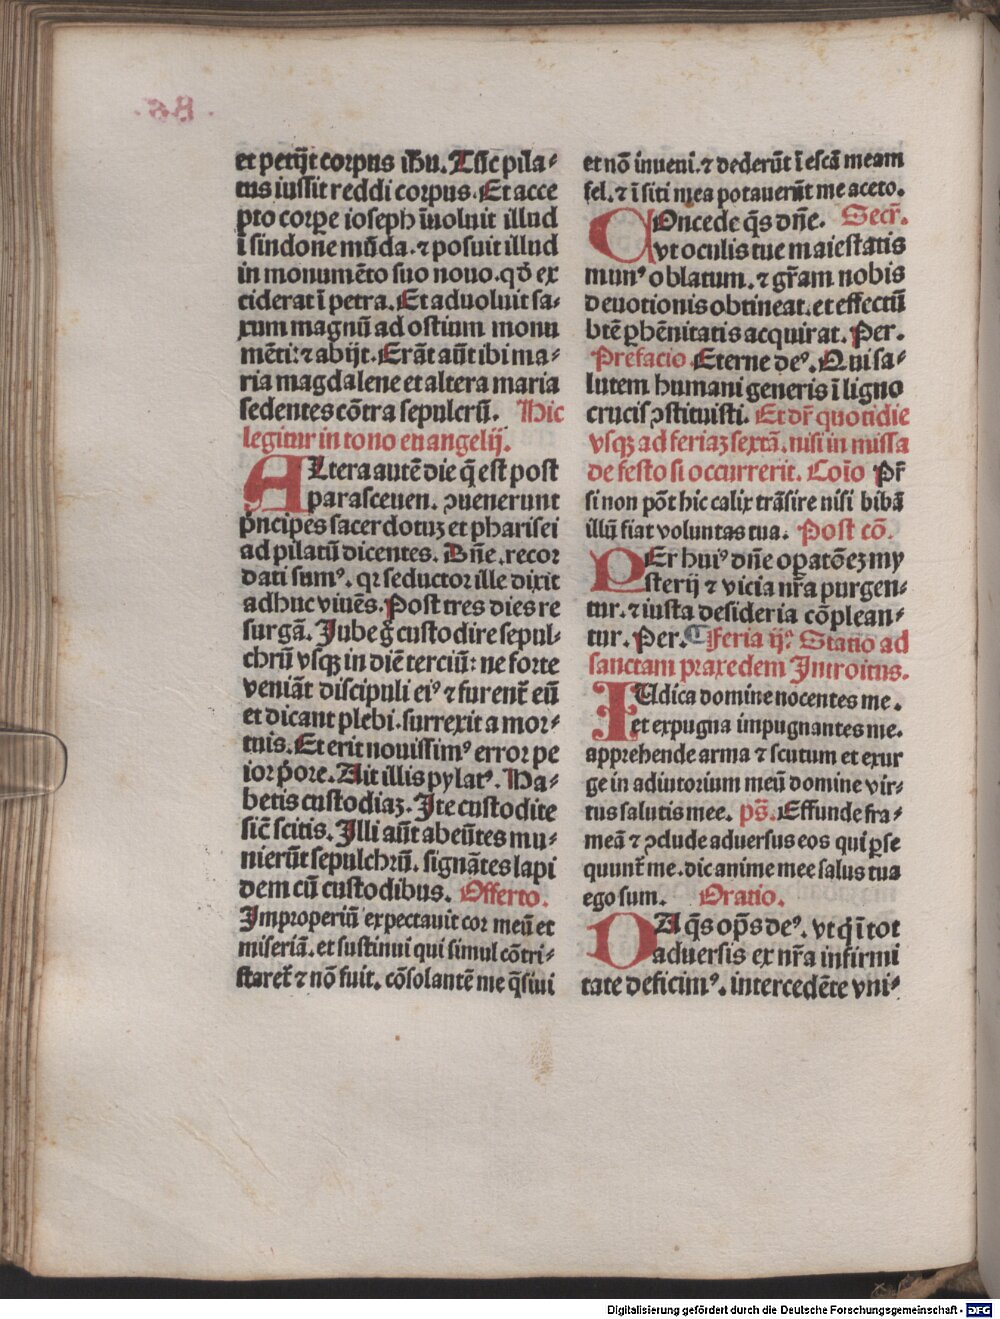 et petijt corpus ihū. Tūc pila⸗
tus iussit reddi corpus. Et acce
pto corpe ioseph īuoluit illud
ī sindone mūda. ⁊ posuit illud
in monumēto suo nouo. qd̄ ex
ciderat ī petra. Et aduoluit sa⸗
xum magnū ad ostium monu
mēti: ⁊ abijt. Erāt aūt ibi ma⸗
ria magdalene et altera maria
sedentes cōtra sepulcrū. Hic
legitur in tono euangelij.
ALtera autē die q̄ est post
parasceuen. ꝯuenerunt
pncipes sacerdotuꝫ et pharisei
ad pilatū dicentes. Dn̄e. recor
dati sumꝰ. qꝛ seductor ille dixit
adhuc viuēs. Post tres dies re
surgā. Jube g̊ custodire sepul⸗
chrū vsqꝫ in diē terciū: ne forte
veniāt discipuli eiꝰ ⁊ furent̄ eū
et dicant plebi. surrexit a mor⸗
tuis. Et erit nouissimꝰ error pe
ior pore. Ait illis pylatꝰ. Ha⸗
betis custodiaꝫ. Ite custodite
sic̄ scitis. Illi aūt abeūtes mu⸗
nierūt sepulchrū. signātes lapi
dem cū custodibus. Offerto.
Improperiū expectauit cor meū et
miseriā. et sustinui qui simul cōtri⸗
staret̄ ⁊ nō fuit. cōsolantē me q̄siui
et nō inueni. ⁊ dederūt ī escā meam
fel. ⁊ ī siti mea potauerūt me aceto.
COncede q̄s dn̄e. Secr̄.
vt oculis tue maiestatis
munꝰ oblatum. ⁊ gr̄am nobis
deuotionis obtineat. et effectū
btē ꝑhēnitatis acquirat. Per.
Prefacio Eterne deꝰ. Qui sa⸗
lutem humani generis ī ligno
crucis ꝯstituisti. Et dr̄ quotidie
vsqꝫ ad feriaꝫ sextā. nisi in missa
de festo si occurrerit. Cōio Pr̄
si non pōt hic calix trāsire nisi bibā
illū fiat voluntas tua. Post cō.
PEr huiꝰ dn̄e oꝑatōeꝫ my
sterij ⁊ vicia nr̄a purgen⸗
tur. ⁊ iusta desideria cōplean⸗
tur. Per. ¶ Feria ij. Statio ad
sanctam praxedem Introitus.
IUdica domine nocentes me.
et expugna impugnantes me.
apprehende arma ⁊ scutum et exur
ge in adiutorium meū domine vir⸗
tus salutis mee. ps̄. Effunde fra⸗
meā ⁊ ꝯclude aduersus eos qui ꝑse
quunt̄ me. dic anime mee salus tua
ego sum. Oratio.
DA q̄s op̄s deꝰ. vt q̄ ī tot
aduersis ex nr̄a infirmi
tate deficimꝰ. intercedēte vni⸗
Digitalisierung gefördert durch die Deutsche Forschungsgemeinschaft - DFG